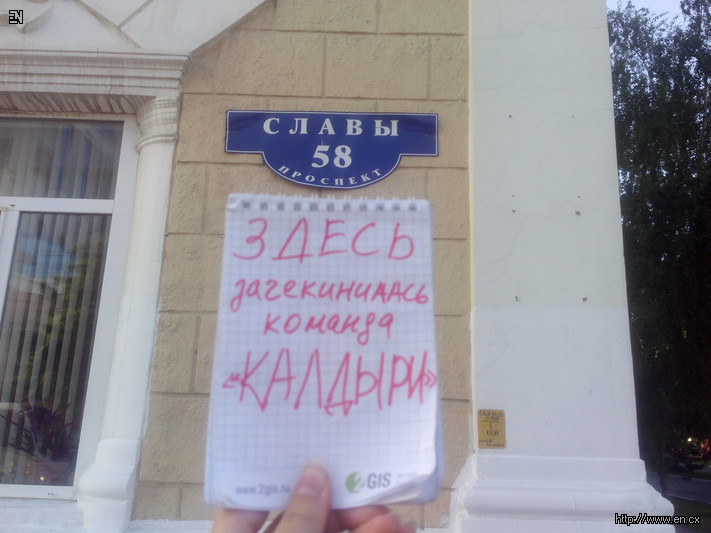 EN
СЛАВЫ
58
ПРОСПЕКТ
ЗДЕСЬ
зачекинилась
команда
«КАЛДЫРИ»
www.2gis.ru
2GIS
http://www.en.cx